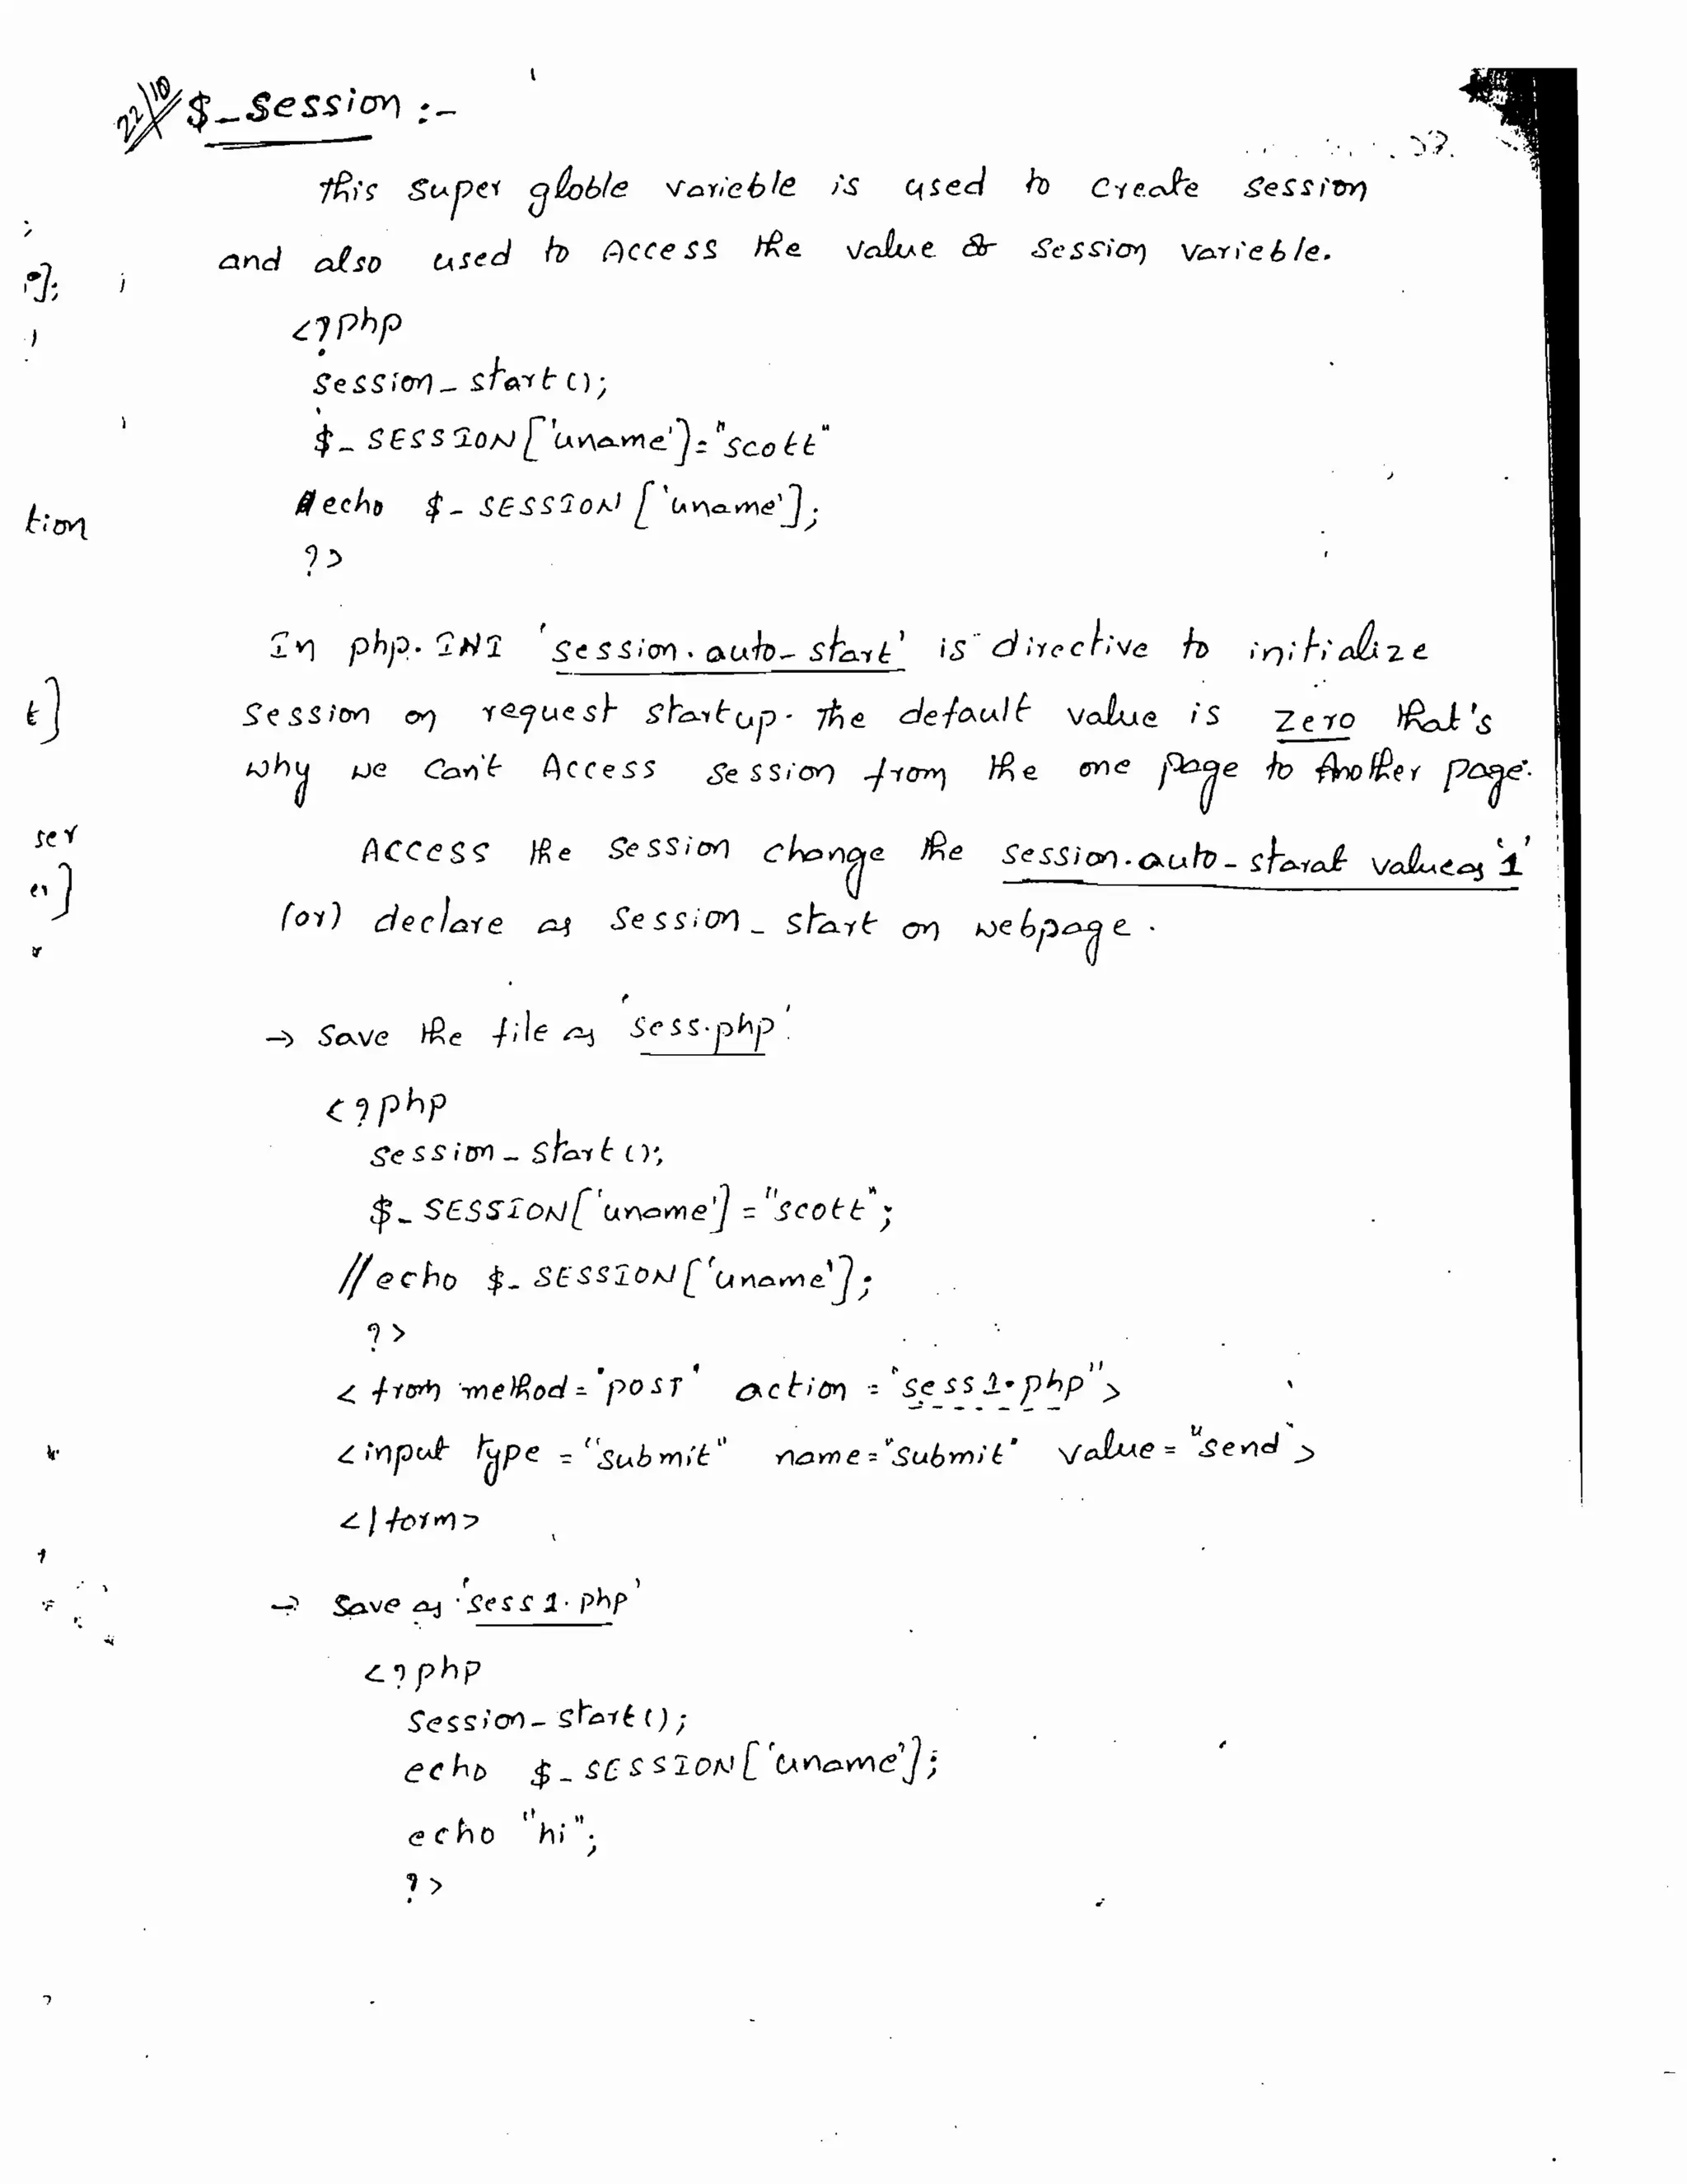 22/10 $_Session :-
this super globle varieble is used to create session
and also used to Access the value of session varieble.
<?php
session_start();
$_SESSION['uname']="scott"
echo $_SESSION['uname'];
?>
tion
In php.INI 'session.auto_start' is directive to initialize
t]
session on request startup. The default value is Zero that's
why we can't Access session from the one page to Another page.
ser
Access the session change the session.auto_starat value as '1'
er]
(or) declare as session_start on webpage.
→ Save the file as 'sess.php'.
<?php
session_start();
$_SESSION['uname']="scott";
//echo $_SESSION['uname'];
?>
<from method="post" action="sess1.php">
<input type="submit" name="submit" value="send">
</form>
→ Save as 'sess1.php'
<?php
Session_start();
echo $_SESSION['uname'];
echo "hi";
?>